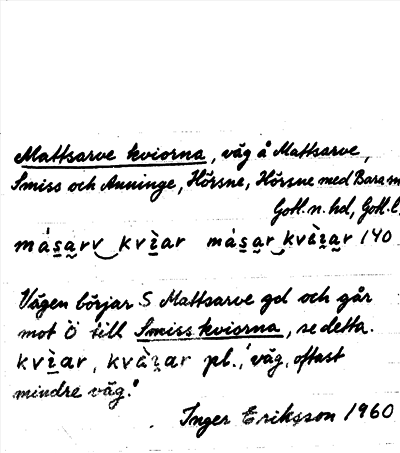 Mattsarve kviorna, väg å Mattsarve,
Smiss och Anninge, Hörsne, Hörsne med Bara
Gotl. n. hd, Gotl. l.
másạrv kvìar másạr kvàịạr 140
Vägen börjar S Mattsarve gd och går
mot Ö till Smiss kviorna, se detta.
kvìar, kvàịar pl., 'väg, oftast
mindre väg.'
Inger Eriksson 1960